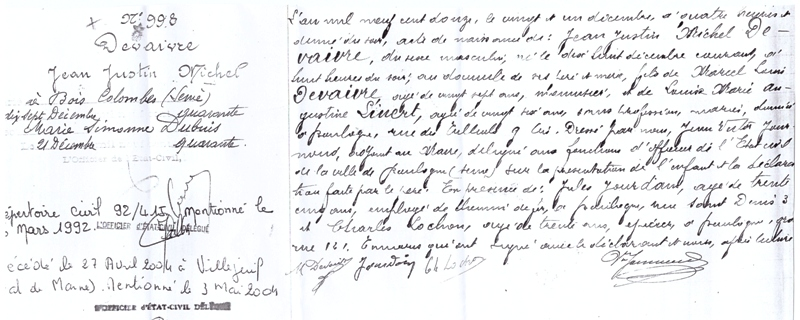 N° 998
Devaivre
Jean Justin Michel
à Bois Colombes (Seine)
dix sept Décembre quarante
Marie Simonne Dubuis
21 Décembre quarante.
L'Officier de l'Etat-Civil,
épertoire Civil 92/415 Mentionné le
Mars 1992. L'OFFICIER D'ÉTAT-CIVIL DÉLÉGUÉ
écédé le 27 Avril 2004 à Villejuif
al de Marne). Mentionné le 3 mai 2004
L'OFFICIER D'ÉTAT-CIVIL DÉLÉGUÉ
L'an mil neuf cent douze, le vingt et un décembre, à quatre heures et
demie du soir, acte de naissance de: Jean Justin Michel De-
vaivre, du sexe masculin, né le dix huit décembre courant, à
huit heures du soir; au domicile de ses père et mère, fils de Marcel
Devaivre, âgé de vingt sept ans, menuisier, et de Louise Marie Au-
gustine Linert, âgée de vingt ans, sans profession, mariés, domiciliés
à rue des Tilleuls 9 bis. Dressé par nous, Jean Victor
adjoint au Maire, délégué aux fonctions d'officier de l'Etat civil
de la ville de (Seine) sur la présentation de l'enfant et la déclara
tion faite par le père. En présence de: Jules Jourdan, âgé de trente
cinq ans, employé de chemin de fer, à rue Saint Denis 3
et Charles Cochon, âgé de trente ans, épicier, à
rue 141. Témoins qui ont signé avec le déclarant et nous, après lecture
M Devaivre Jourdan Ch